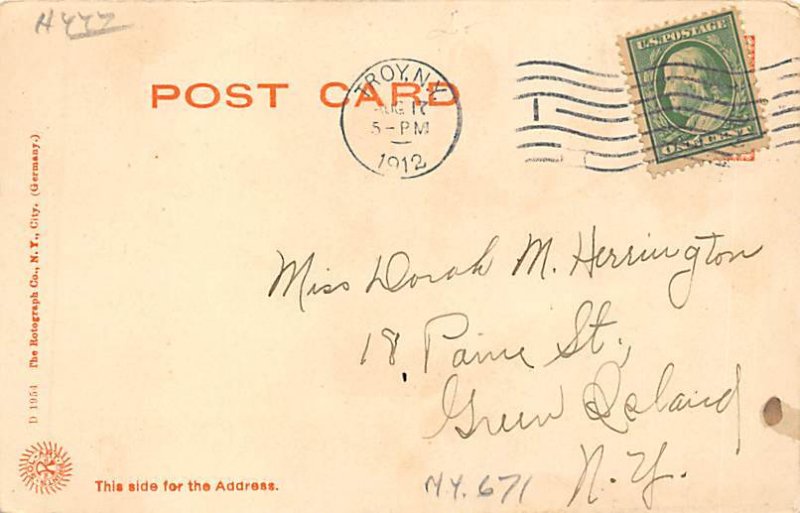 H477
POST CARD
TROY, N.Y.
AUG 17
5-PM
1912
1
U.S. POSTAGE
ONE CENT
D 1954 The Rotograph Co., N. Y., City. (Germany.)
Miss Dorah M. Herrington
18 Paine St.,
Green Island
N.Y.
N.Y. 671
This side for the Address.